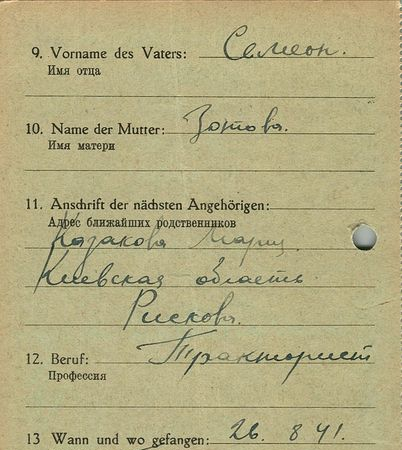 9. Vorname des Vaters: Семеон.
Имя отца
10. Name der Mutter: Зотова.
Имя матери
11. Anschrift der nächsten Angehörigen:
Адрес ближайших родственников
Казакова Мария
Киевская область
Рискова.
12. Beruf: Тракторист
Профессия
13 Wann und wo gefangen: 26. 8 41.